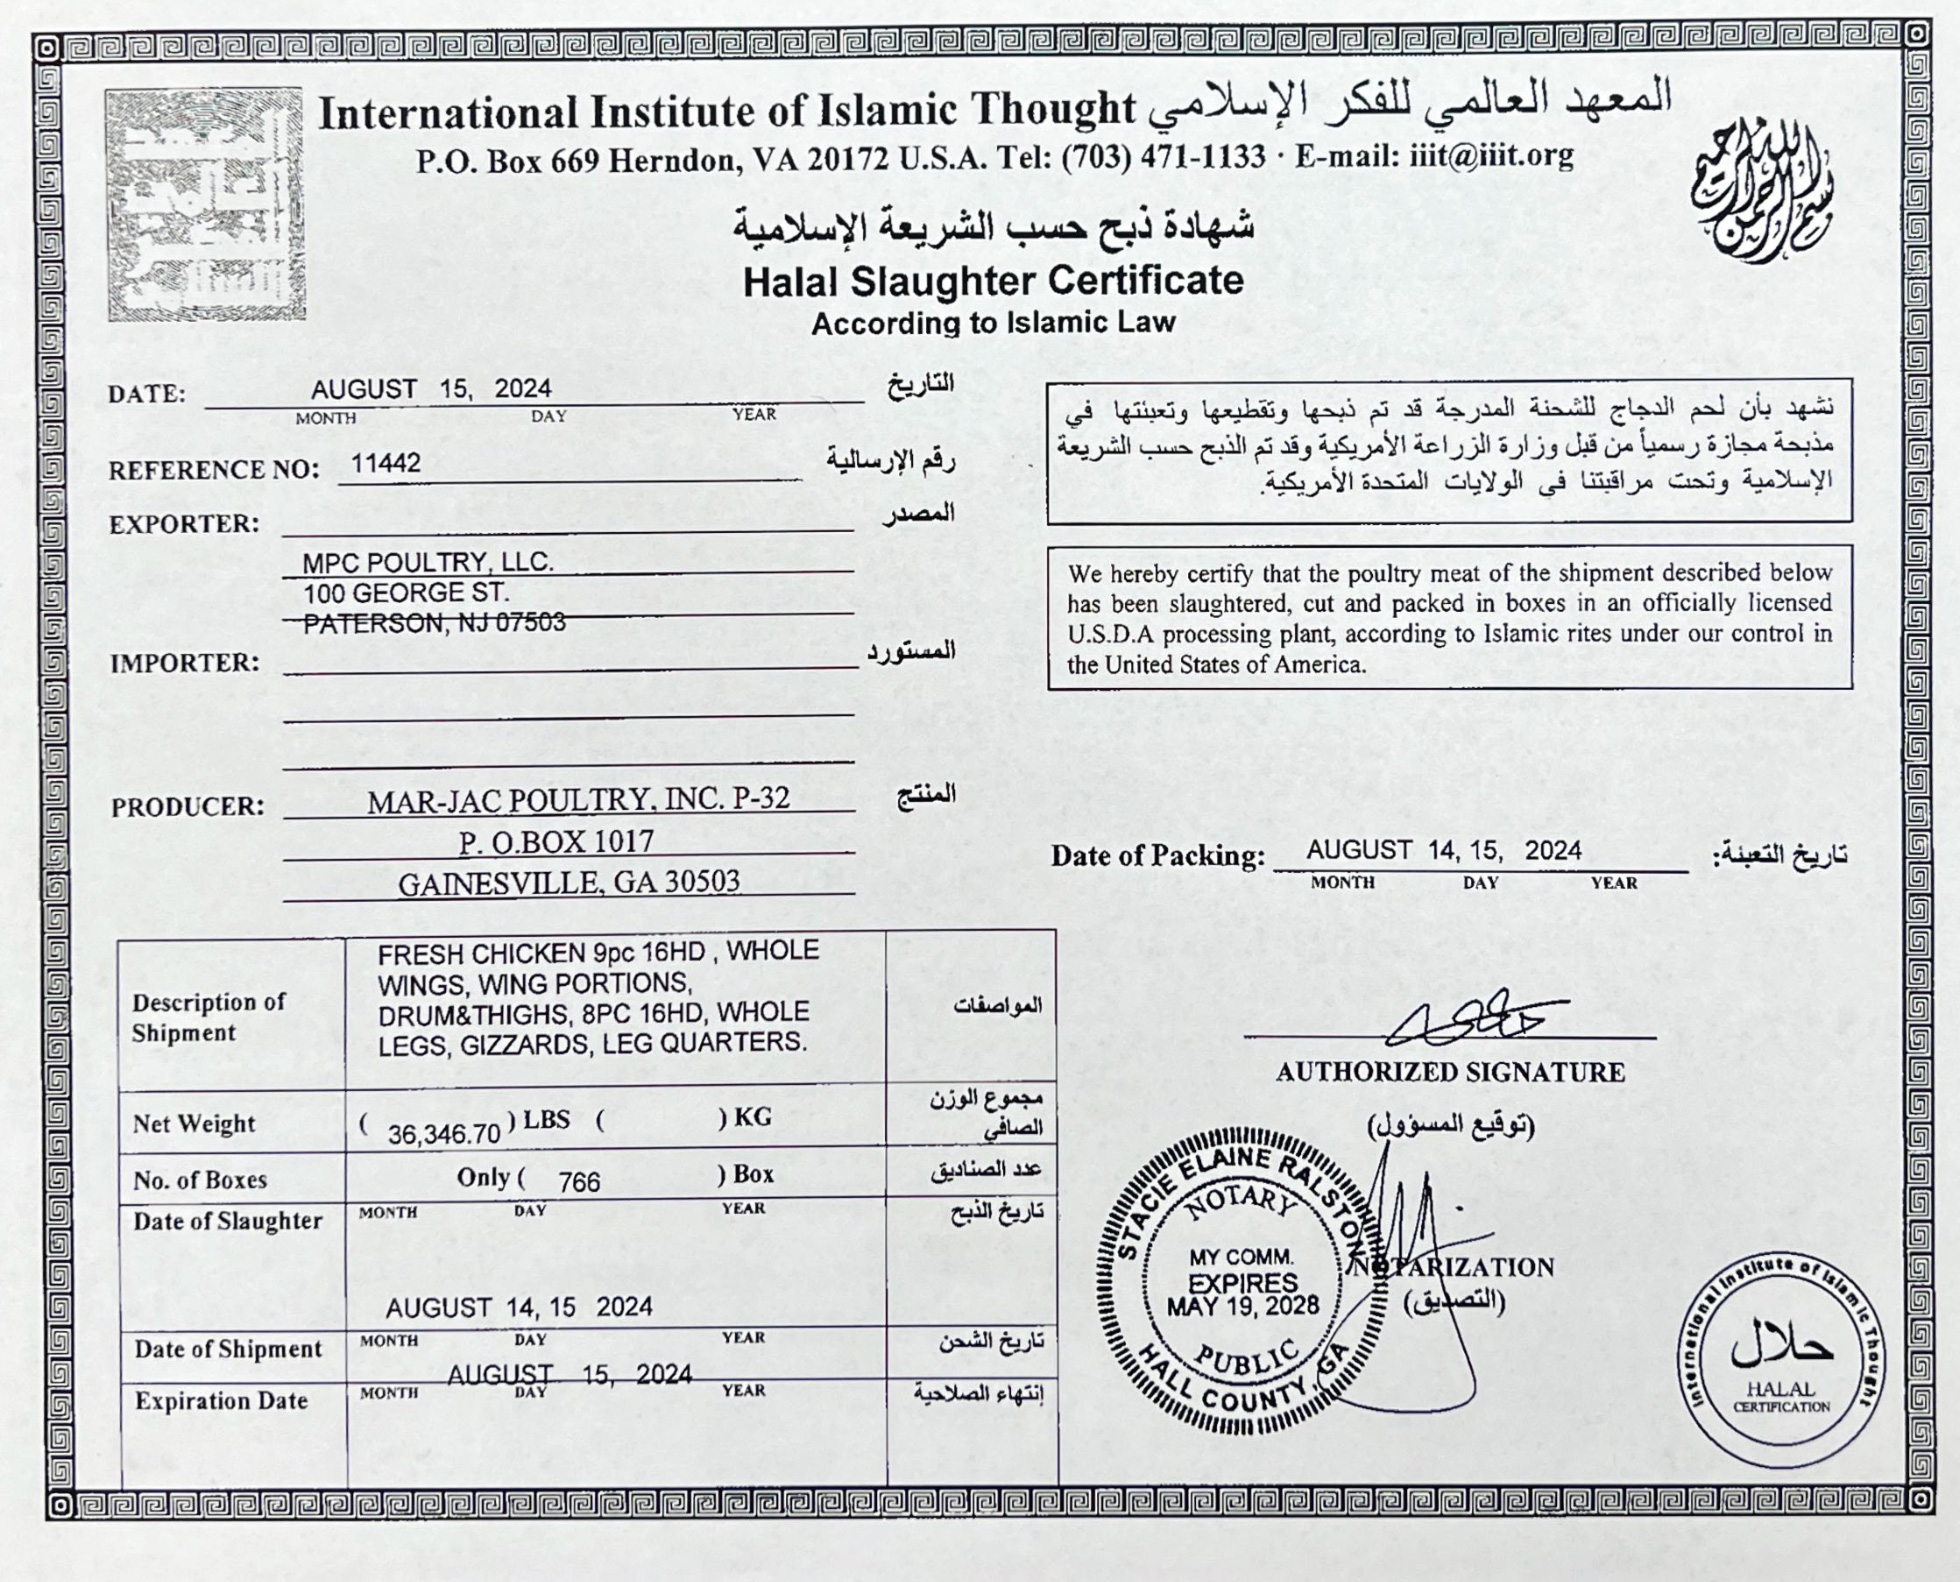 International Institute of Islamic Thought المعهد العالمي للفكر الإسلامي
P.O. Box 669 Herndon, VA 20172 U.S.A. Tel: (703) 471-1133 · E-mail: iiit@iiit.org
بسم الله الرحمن الرحيم
شهادة ذبح حسب الشريعة الإسلامية
Halal Slaughter Certificate
According to Islamic Law
DATE: AUGUST 15, 2024 التاريخ
MONTH DAY YEAR
REFERENCE NO: 11442 رقم الإرسالية
EXPORTER: المصدر
MPC POULTRY, LLC.
100 GEORGE ST.
PATERSON, NJ 07503
IMPORTER: المستورد
PRODUCER: MAR-JAC POULTRY, INC. P-32 المنتج
P. O.BOX 1017
GAINESVILLE, GA 30503
نشهد بأن لحم الدجاج للشحنة المدرجة قد تم ذبحها وتقطيعها وتعبئتها في
مذبحة مجازة رسمياً من قبل وزارة الزراعة الأمريكية وقد تم الذبح حسب الشريعة
الإسلامية وتحت مراقبتنا في الولايات المتحدة الأمريكية.
We hereby certify that the poultry meat of the shipment described below
has been slaughtered, cut and packed in boxes in an officially licensed
U.S.D.A processing plant, according to Islamic rites under our control in
the United States of America.
Date of Packing: AUGUST 14, 15, 2024 تاريخ التعبئة:
MONTH DAY YEAR
Description of Shipment المواصفات
FRESH CHICKEN 9pc 16HD , WHOLE
WINGS, WING PORTIONS,
DRUM&THIGHS, 8PC 16HD, WHOLE
LEGS, GIZZARDS, LEG QUARTERS.
Net Weight ( 36,346.70 ) LBS ( ) KG مجموع الوزن الصافي
No. of Boxes Only ( 766 ) Box عدد الصناديق
Date of Slaughter MONTH DAY YEAR تاريخ الذبح
AUGUST 14, 15 2024
Date of Shipment MONTH DAY YEAR تاريخ الشحن
AUGUST 15, 2024
Expiration Date MONTH DAY YEAR إنتهاء الصلاحية
AUTHORIZED SIGNATURE
(توقيع المسؤول)
NOTARIZATION
(التصديق)
STACIE ELAINE RALSTON
NOTARY
MY COMM.
EXPIRES
MAY 19, 2028
PUBLIC
HALL COUNTY, GA
International Institute of Islamic Thought
حلال
HALAL
CERTIFICATION